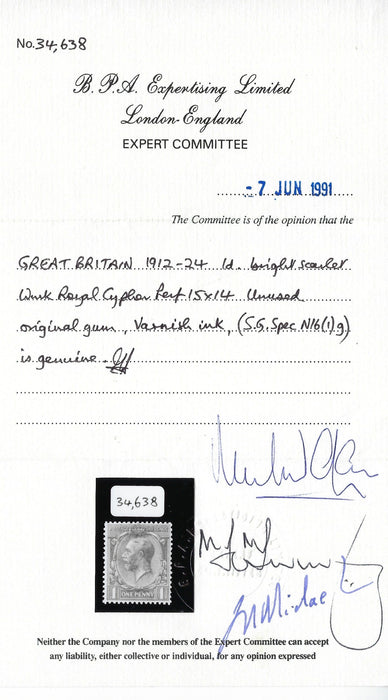 No. 34,638
B. P. A. Expertising Limited
London-England
EXPERT COMMITTEE
- 7 JUN 1991
The Committee is of the opinion that the
GREAT BRITAIN 1912-24 1d. bright scarlet
Wmk Royal Cypher Perf 15x14 Unused
original gum, Varnish ink, (S.G. Spec N16(1)g)
is genuine.
34,638
ONE PENNY
Neither the Company nor the members of the Expert Committee can accept
any liability, either collective or individual, for any opinion expressed